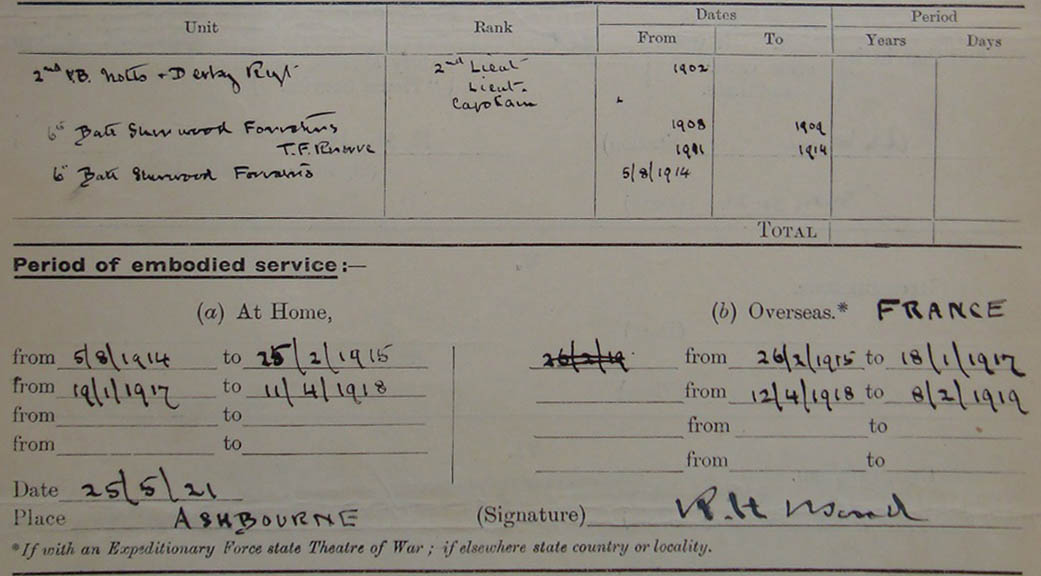 Unit Rank Dates Period
From To Years Days
2nd V.B. Notts + Derby Regt 2nd Lieut 1902
Lieut.
Captain "
6th Batt Sherwood Foresters 1908 1909
T.F. Reserve 1911 1914
6th Batt Sherwood Foresters 5/8/1914
TOTAL
Period of embodied service:—
(a) At Home, (b) Overseas.* FRANCE
from 5/8/1914 to 25/2/1915 26/2/19 from 26/2/1915 to 18/1/1917
from 19/1/1917 to 11/4/1918 from 12/4/1918 to 8/2/1919
from to from to
from to from to
Date 25/5/21
Place ASHBOURNE (Signature) R. H.
*If with an Expeditionary Force state Theatre of War; if elsewhere state country or locality.